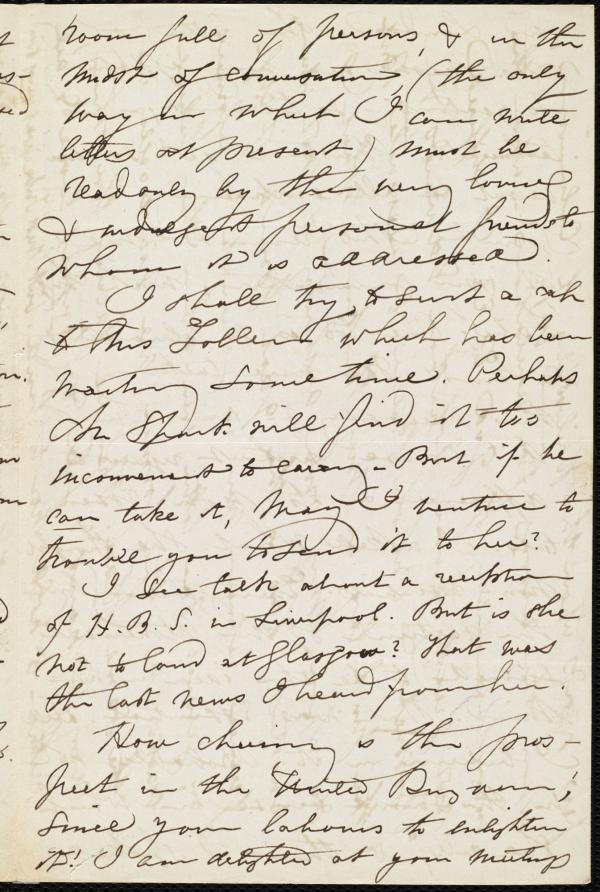 room full of persons, & in the
midst of conversation, (the only
way in which I can write
letters at present) must be
read only by the very loving
& indulgent personal friend to
whom it is addressed.
I shall try to send a
to Mrs Follen which has been
waiting some time. Perhaps
Mr Spark will find it too
inconvenient to carry - But if he
can take it, May I venture to
trouble you to send it to her?
I see talk about a reception
of H. B. S. in Liverpool. But is she
not to land at Glasgow? That was
the last news I heard from her.
How cheering is the pros-
pect in the United Kingdom,
since your labours to enlighten
it! I am delighted at your meetings